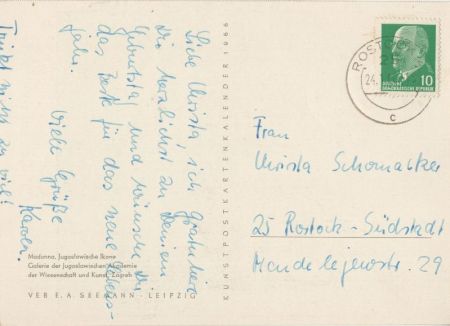 Liebe Christa, ich gratuliere
Dir herzlichst zu Deinem
Geburtstag und wünsche Dir
das Beste für das neue Lebens-
jahr.
Viele Grüße
Karola.
Trinkt nicht zu viel!
Madonna, Jugoslawische Ikone
Galerie der Jugoslawischen Akademie
der Wissenschaft und Kunst, Zagreb
VEB E. A. SEEMANN - LEIPZIG
KUNSTPOSTKARTENKALENDER 1966
ROSTOCK
24.
c
10
DEUTSCHE
DEMOKRATISCHE REPUBLIK
Frau
Christa Schomatker
25 Rostock-Südstadt
Mendelejewstr. 29